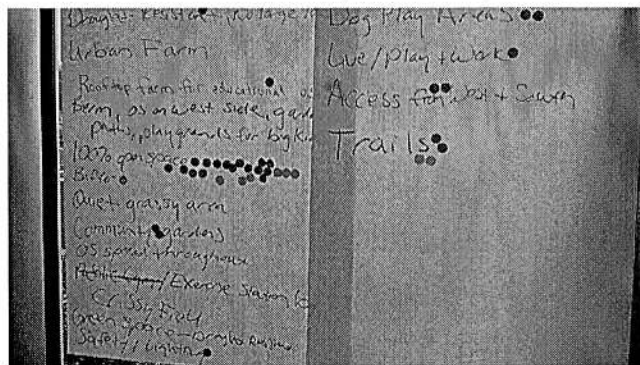 Drought Resistant, no large
Urban Farm
Rooftop farm for educational
Berm, OS on west side, gard
paths, playgrounds for big kid
100% open space
Quiet grassy
Community gardens
OS spread throughout
/Exercise Station
Crissy Field
Green Space – Drought
Safety/Lighting
Dog Play Areas
Live/Play + Work
Access from West + South
Trails